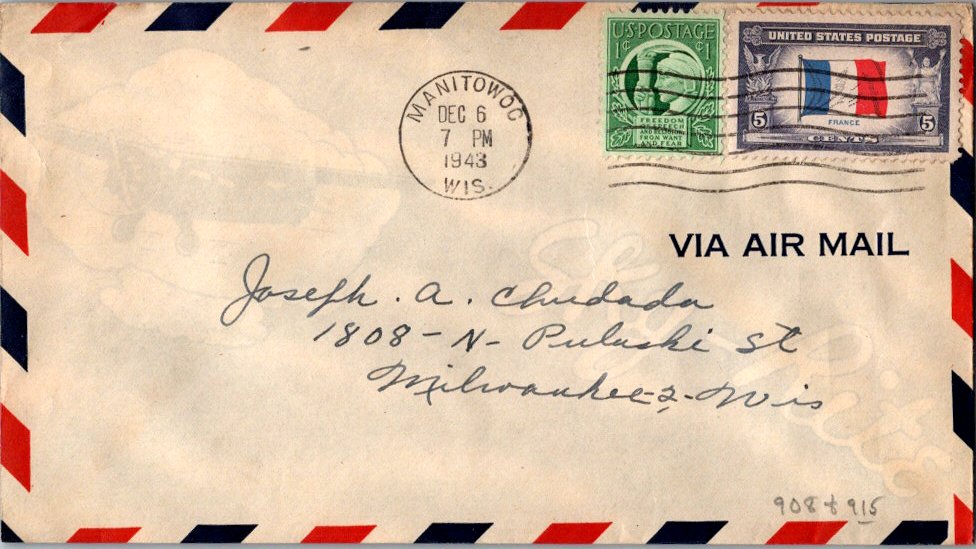 U.S. POSTAGE
1¢ 1¢
FREEDOM
OF SPEECH
AND RELIGION
FROM WANT
AND FEAR
UNITED STATES POSTAGE
FRANCE
5 5
CENTS
MANITOWOC
DEC 6
7 PM
1943
WIS.
VIA AIR MAIL
Joseph. A. Chudada
1808-N-Pulaski St
Milwaukee-2,-Wis
908 & 915